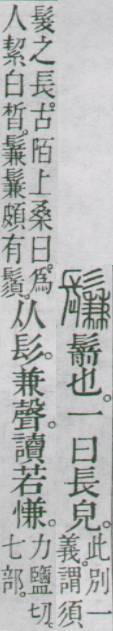 鬑鬋也。一曰長皃。此別一
義。謂須
髮之長。古陌上桑曰。爲
人絜白皙。鬑鬑頗有鬚。
从髟。兼聲。讀若慊。力鹽切。
七部。